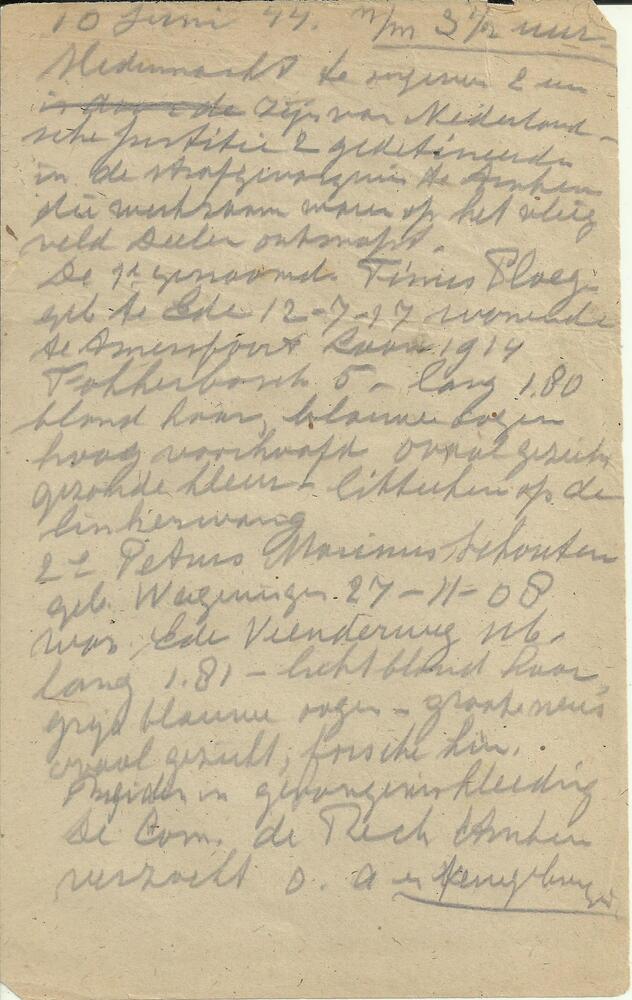 10 Juni 44. n/m 3 1/2 uur
Hedennacht te ongeveer 2 uur
in dag e de zijn van Nederland-
sche justitie 2 gedetineerden
in de strafgevangenis te Arnhem
die werkzaam waren op het vlieg
veld Deelen ontsnapt.
De 1e genaamd Tinus Ploeg
geb te Ede 12-7-17 wonende
te Amersfoort Laan 1914
5 - lang 1.80
blond haar, blauwe oogen
hoog voorhoofd ovaal gezicht
gezonde kleur - litteeken op de
linkerwang
2e Petrus Marinus Schouten
geb. Wageningen 27-11-08
won. Ede Veenderweg
lang 1.81 - licht blond haar
grijs blauwe oogen - groote neus
ovaal gezicht, forsche kin.
Beiden in gevangeniskleeding
De Com. de Rech Arnhem
verzoekt o. a en terugbrenging